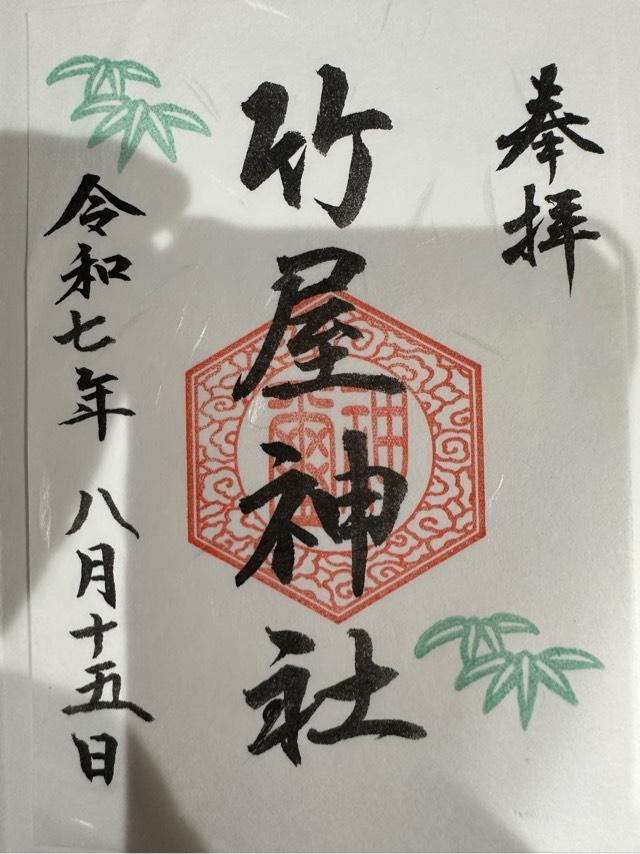 奉拝
竹屋神社
令和七年 八月十五日